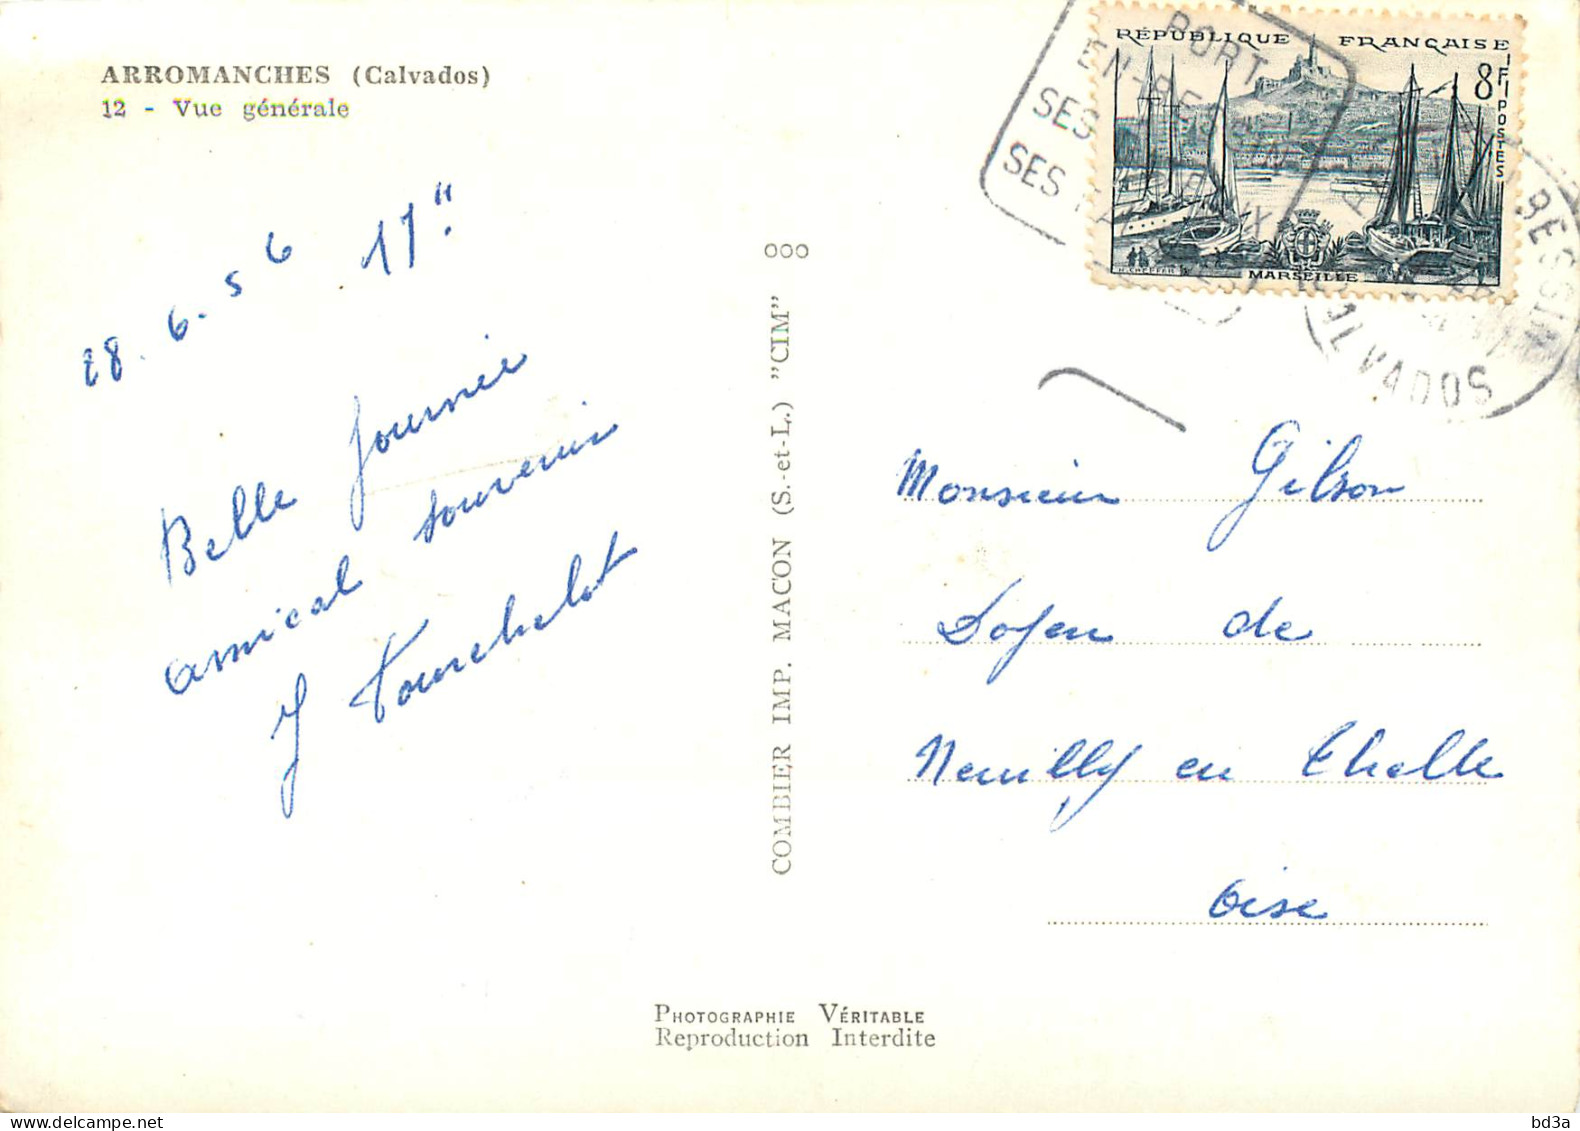 ARROMANCHES (Calvados)
12 - Vue générale
28.6.56 17"
Belle journée
amical souvenir
J Tourchelot
COMBIER IMP. MACON (S.-et-L.) "CIM"
RÉPUBLIQUE FRANÇAISE
8F
POSTES
MARSEILLE
PORT
EN-BESSIN
SES
SES
BESSIN
CALVADOS
Monsieur Gilson
Doyen de
Neuilly en Thelle
Oise
PHOTOGRAPHIE VÉRITABLE
Reproduction Interdite
bd3a